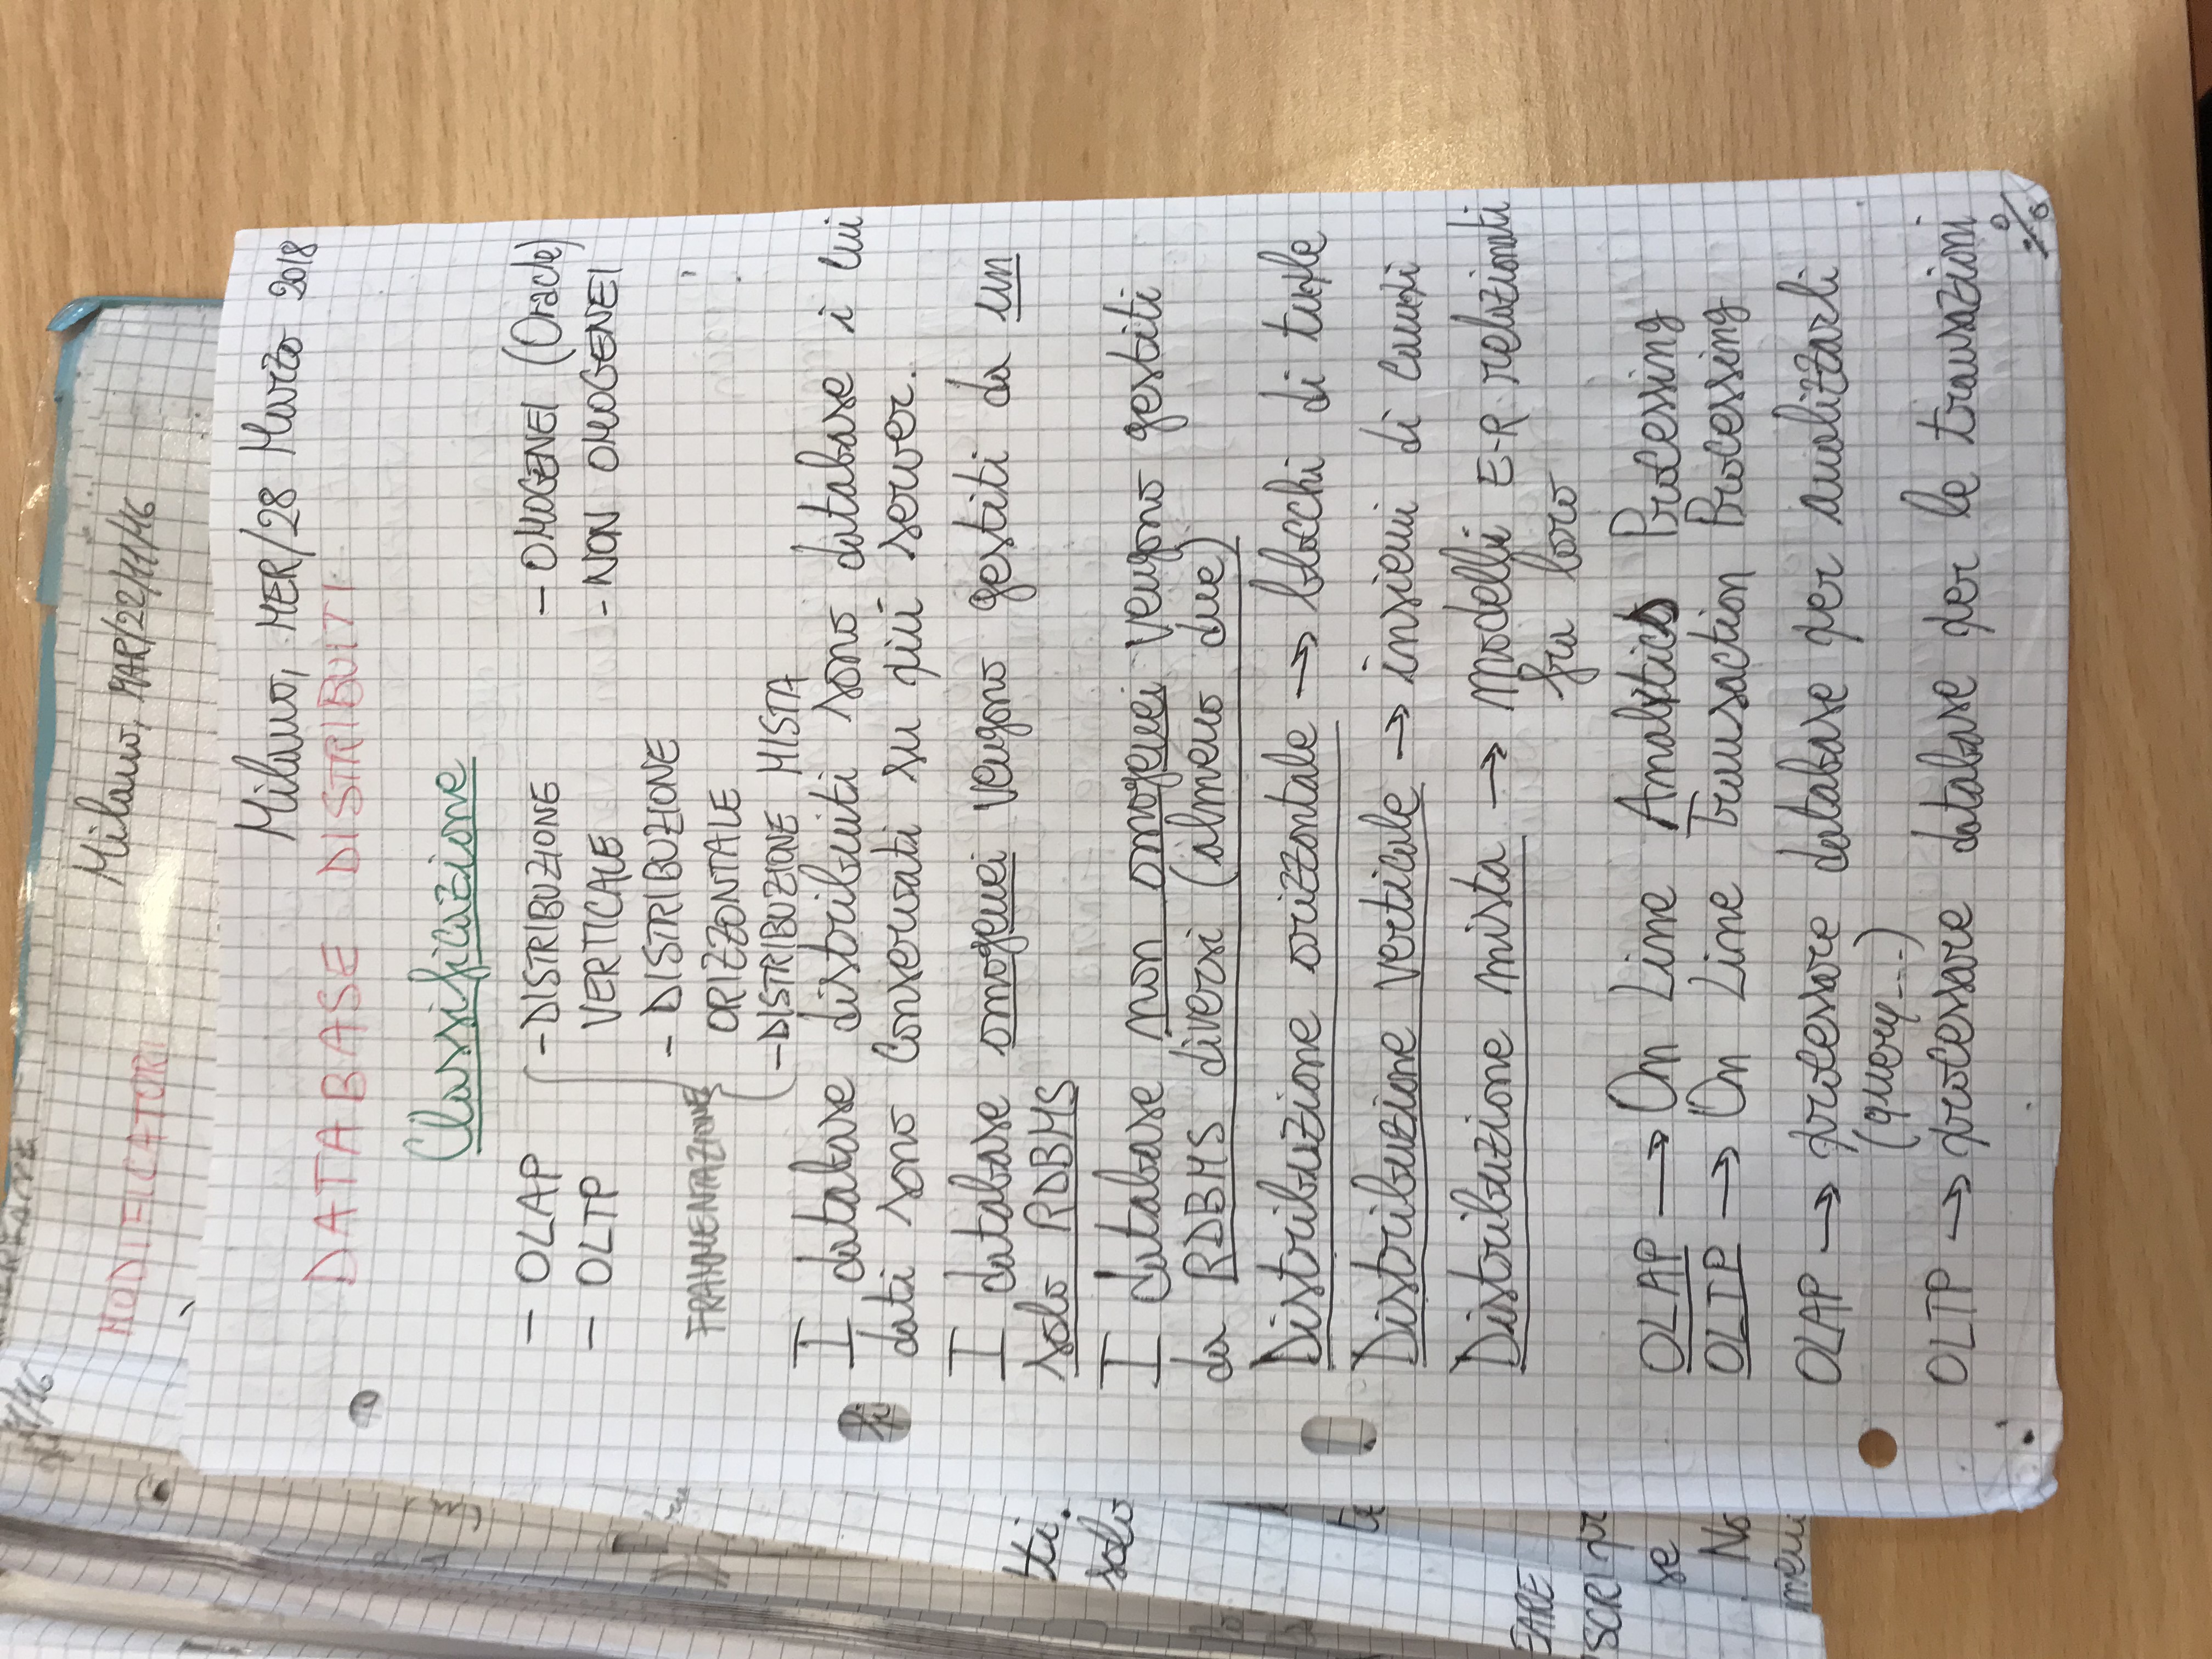 Milano, MER/28 Marzo 2018
DATABASE DISTRIBUITI
Classificazione
- OLAP
- OLTP
- DISTRIBUZIONE
VERTICALE
- DISTRIBUZIONE
ORIZZONTALE
- DISTRIBUZIONE MISTA
- OMOGENEI (Oracle)
- NON OMOGENEI
FRAMMENTAZIONE
I database distribuiti sono database i cui
dati sono conservati su più server.
I database omogenei vengono gestiti da un
solo RDBMS
I database non omogenei vengono gestiti
da RDBMS diversi (almeno due)
Distribuzione orizzontale → blocchi di tuple
Distribuzione verticale → insiemi di campi
Distribuzione mista → modelli E-R relazionati
fra loro
OLAP → On Line Analytics Processing
OLTP → On Line Transaction Processing
OLAP → processare database per analizzarli
(query---)
OLTP → processare database per le transazioni
Milano, MAR/22/11/16
MODIFICATORI
tti.
solo
FARE
SCRI
se
No